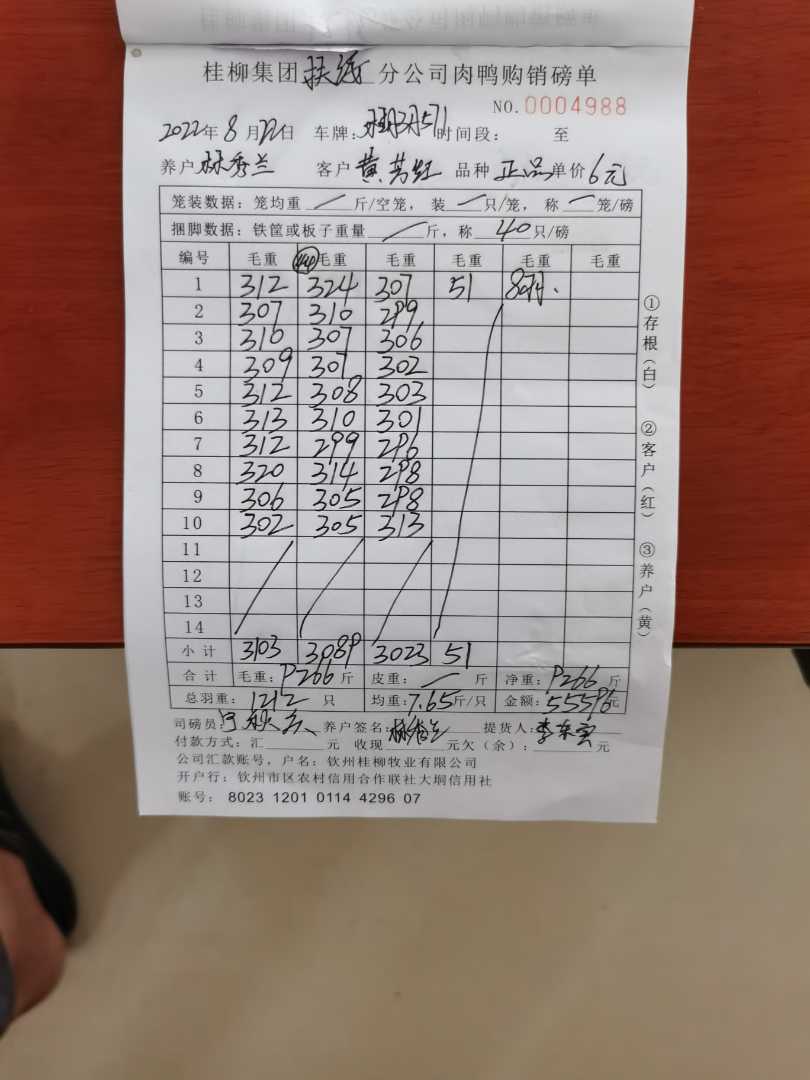 桂柳集团扶绥分公司肉鸭购销磅单
NO.0004988
2022年8月22日 车牌: 时间段: 至
养户林秀兰 客户黄 红 品种 正品 单价6元
笼装数据: 笼均重 / 斤/空笼, 装 / 只/笼, 称 / 笼/磅
捆脚数据: 铁筐或板子重量 / 斤, 称 40 只/磅
编号 毛重 毛重 毛重 毛重 毛重 毛重
1 312 324 307 51
2 307 310 299
3 310 307 306
4 309 307 302
5 312 308 303
6 313 310 301
7 312 299 296
8 320 314 298
9 306 305 298
10 302 305 313
11
12
13
14
小计 3103 3089 3023 51
合计 毛重: 9266 斤 皮重: / 斤 净重: 9266 斤
总羽重: 1212 只 均重: 7.65 斤/只 金额: 55596元
司磅员: 养户签名: 提货人:
付款方式: 汇 元 收现 元欠(余): 元
公司汇款账号, 户名: 钦州桂柳牧业有限公司
开户行: 钦州市区农村信用合作联社大垌信用社
账号: 8023 1201 0114 4296 07
①存根(白)
②客户(红)
③养户(黄)